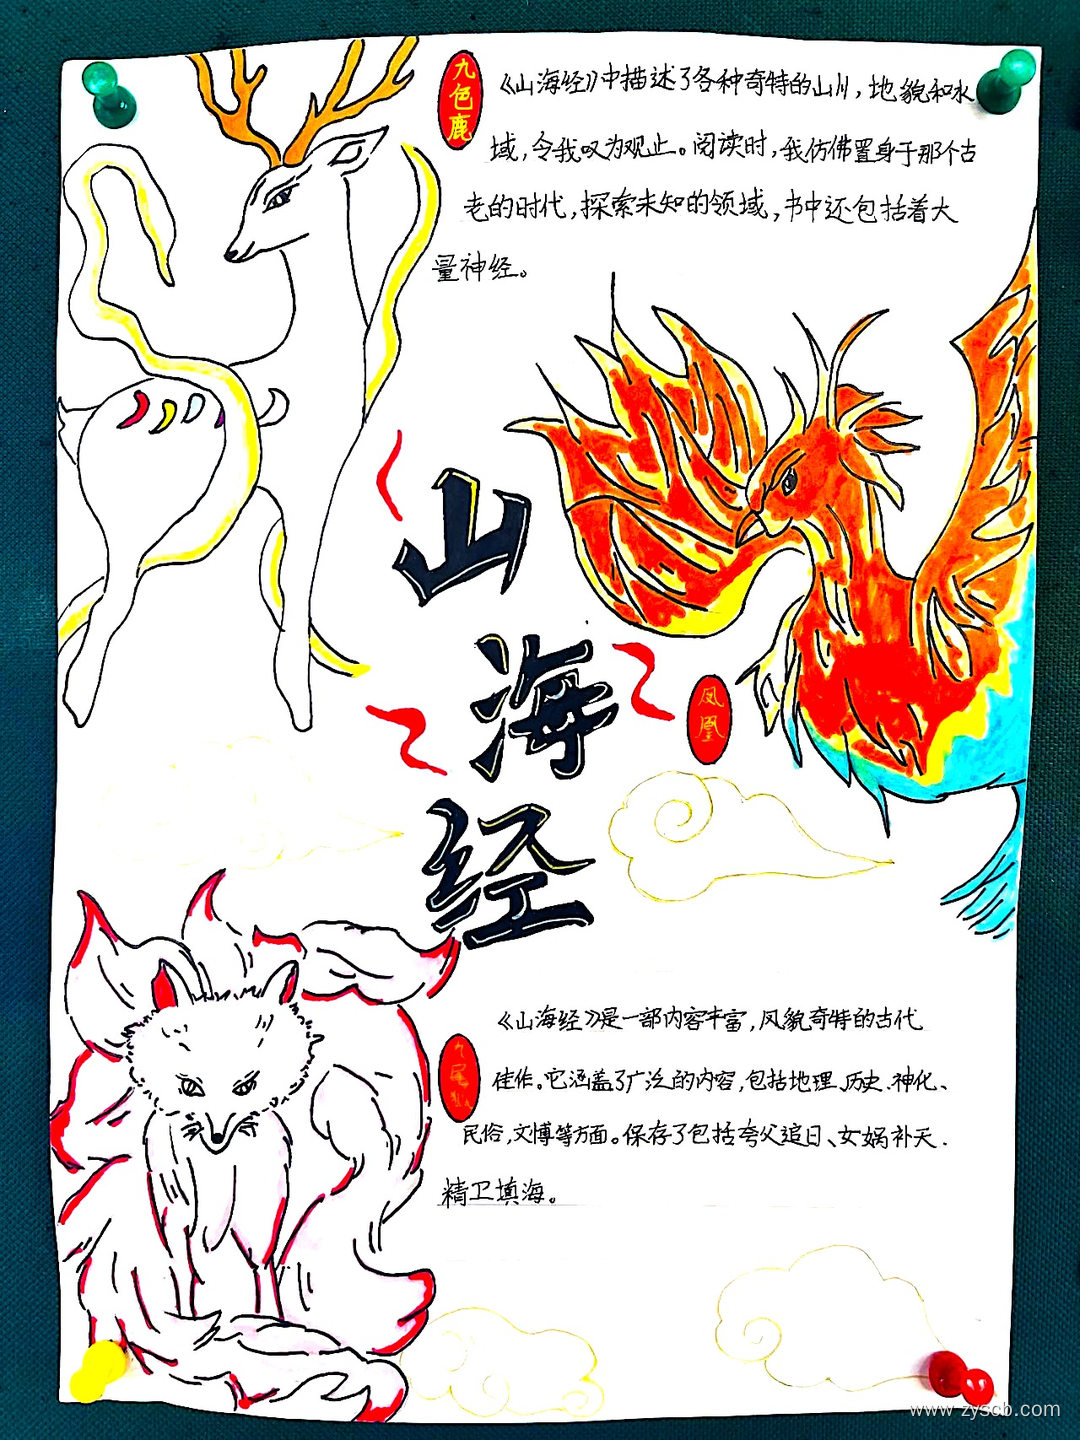 九色鹿
《山海经》中描述了各种奇特的山川，地貌和水
域，令我叹为观止。阅读时，我仿佛置身于那个古
老的时代，探索未知的领域，书中还包括着大
量神经。
山
海
经
凤凰
《山海经》是一部内容丰富，风貌奇特的古代
佳作。它涵盖了广泛的内容，包括地理、历史、神化、
民俗，文博等方面。保存了包括夸父追日、女娲补天.
精卫填海。
九尾狐
www.zyscb.com